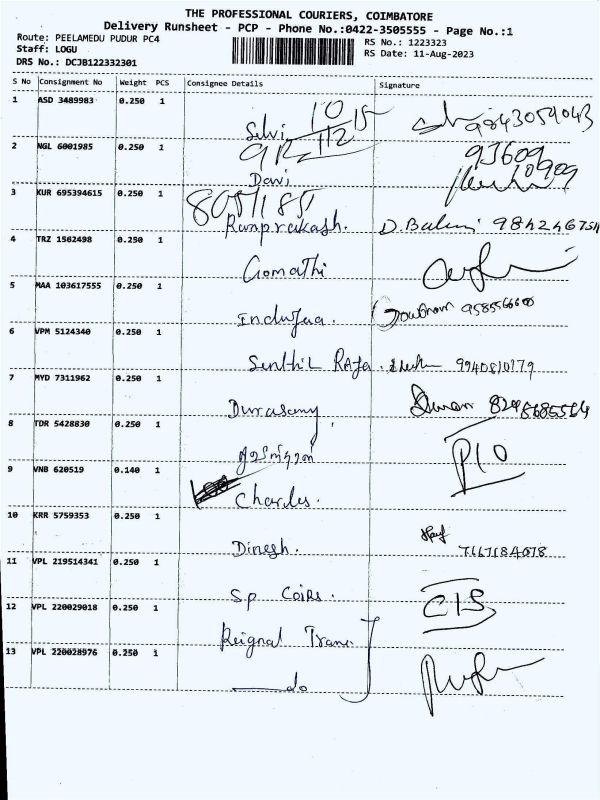 THE PROFESSIONAL COURIERS, COIMBATORE
Delivery Runsheet - PCP - Phone No.:0422-3505555 - Page No.:1
Route: PEELAMEDU PUDUR PC4
RS No.: 1223323
Staff: LOGU
RS Date: 11-Aug-2023
DRS No.: DCJB122332301
S No Consignment No Weight PCS Consignee Details Signature
1 ASD 3489983 0.250 1
Selvi 9843059043
2 NGL 6001985 0.250 1
Davi
3 KUR 695394615 0.250 1
Ramprakash. D. 984246754
4 TRZ 1502498 0.250 1
Gomathi
5 MAA 103617555 0.250 1
Indujaa. 9585566600
6 VPM 5124340 0.250 1
Senthil Raja. 9940810179
7 MYD 7311962 0.250 1
Durasamy
8 TDR 5428830 0.250 1
9 VNB 620519 0.140 1
Charles.
10 KRR 5759353 0.250 1
Dinesh.
11 VPL 219514341 0.250 1
SP Coirs.
12 VPL 220029018 0.250 1
Reignal Trans.
13 VPL 220028976 0.250 1
do